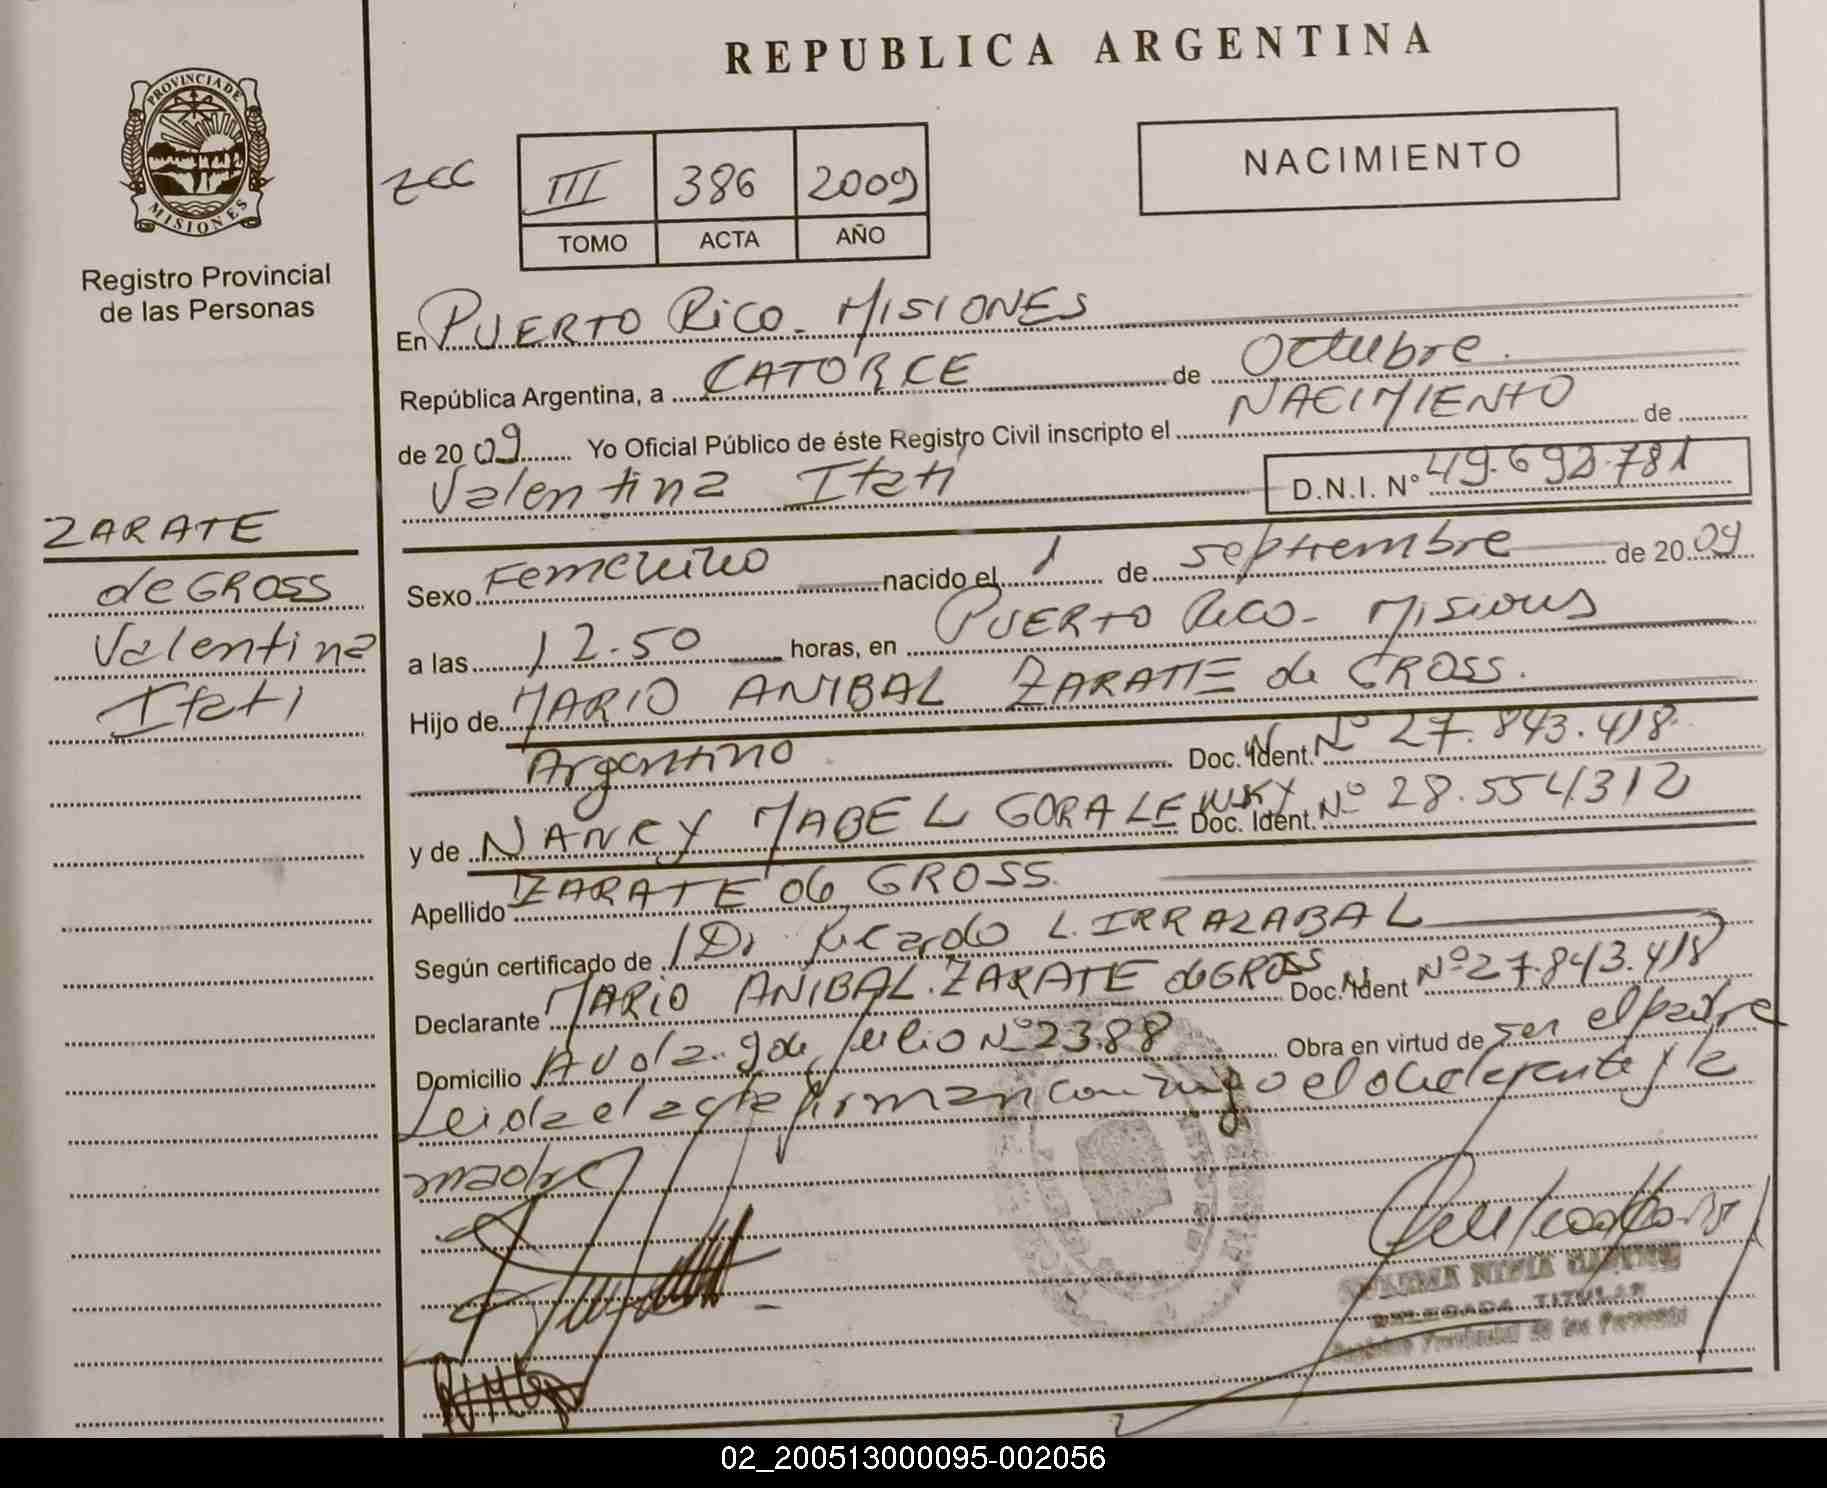 REPUBLICA ARGENTINA
PROVINCIA DE
MISIONES
Registro Provincial
de las Personas
III 386 2009
TOMO ACTA AÑO
NACIMIENTO
En PUERTO RICO - MISIONES
República Argentina, a CATORCE de Octubre.
de 20 09 Yo Oficial Público de éste Registro Civil inscripto el NACIMIENTO de
Valentina Itati D.N.I. N° 49.692.781
ZARATE
de GROSS
Valentina
Itati
Sexo Femenino nacido el 1 de septiembre de 20 09
a las 12.50 horas, en PUERTO Rico - Misiones
Hijo de MARIO ANIBAL ZARATE de GROSS.
Argentino Doc. Ident. N° 27.843.418.
y de NANCY MABEL GORALEWSKY Doc. Ident. N° 28.554312
Apellido ZARATE de GROSS.
Según certificado de Dr Ricardo L. IRRAZABAL
Declarante MARIO ANIBAL ZARATE de GROSS Doc. Ident N° 27.843.418
Domicilio Avda. 9 de Julio N° 2388 Obra en virtud de ser el padre
Leida el acta firman conmigo el declarante y la
madre
DELEGADA TITULAR
Registro Provincial de las Personas
02_200513000095-002056